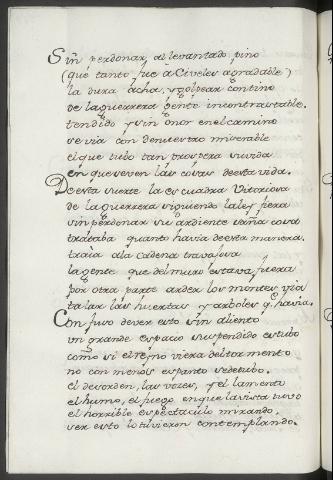 Sin perdonar al levantado pino
(que tanto fue a Civeles agradable)
la dura acha, y golpear contino
de la guerrera gente incontrastable.
tendido y sin onor en el camino
se via con denuestro miserable
el que tubo tan prospera su vida
en que se ven las cosas de esta vida.
De esta suerte la escuadra Vitoriosa
de la guerrera siguiendo la ley fiera
sin perdonar su ardiente saña cosa
trataba quanto havia de esta manera.
traia a la cadena travajosa
la gente que del muro estava fuera
por otra parte arder los montes via
talar las huertas y arboles q. havia.
Confuso de ver esto sin aliento
un grande espacio suspendido estubo
como si el Reyno viera del tormento
no con menos espanto se detubo.
el desorden, las vozes, y el lamento
el humo, el fuego en que la vista tuvo
el horrible espectaculo mirando,
ver esto lo tuvieron contemplando.